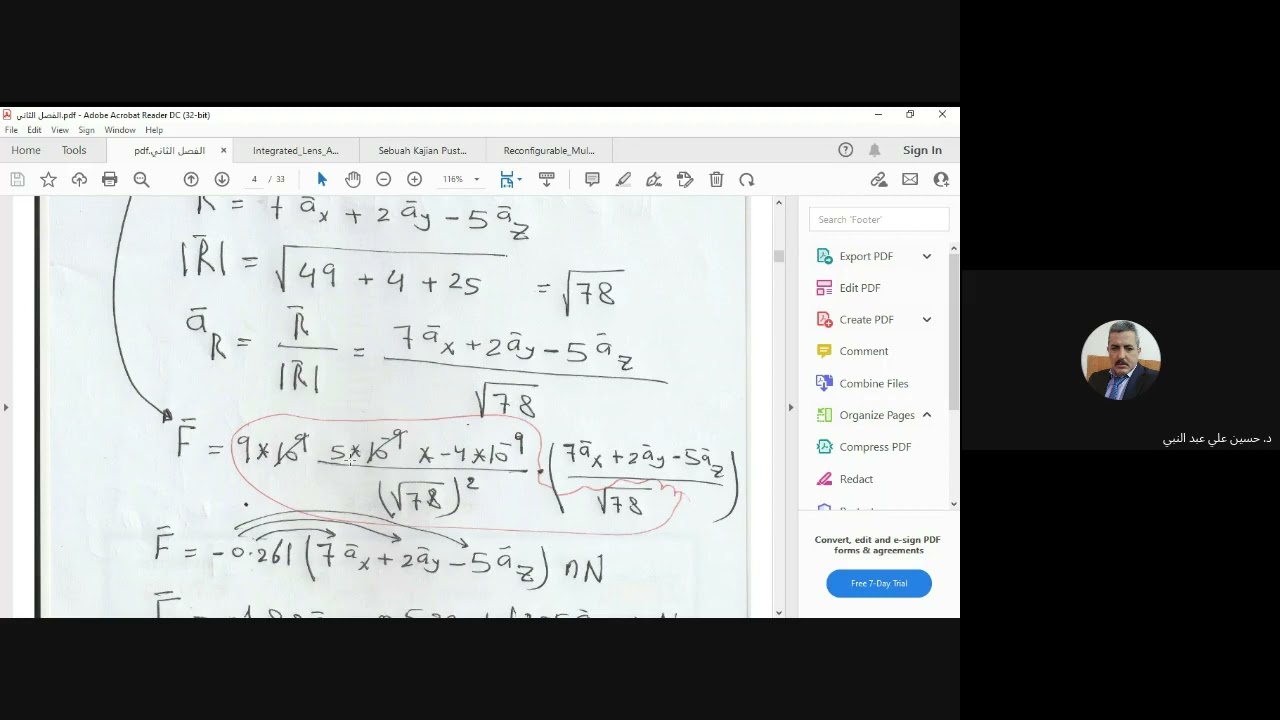 الفصل الثاني.pdf - Adobe Acrobat Reader DC (32-bit)
File Edit View Sign Window Help
Home Tools الفصل الثاني.pdf × Integrated_Lens_A... Sebuah Kajian Pust... Reconfigurable_Mul... Sign In
4 / 33 116%
R = 7 āx + 2 āy - 5 āz
|R̄| = √49 + 4 + 25 = √78
āR = R̄ / |R̄| = 7 āx + 2 āy - 5 āz / √78
F̄ = 9*10^9 5*10^-9 x -4*10^-9 / (√78)^2 . (7āx + 2āy - 5āz / √78)
F̄ = -0.261 (7 āx + 2āy - 5 āz) nN
Search 'Footer'
Export PDF
Edit PDF
Create PDF
Comment
Combine Files
Organize Pages
Compress PDF
Redact
Convert, edit and e-sign PDF
forms & agreements
Free 7-Day Trial
د. حسين علي عبد النبي